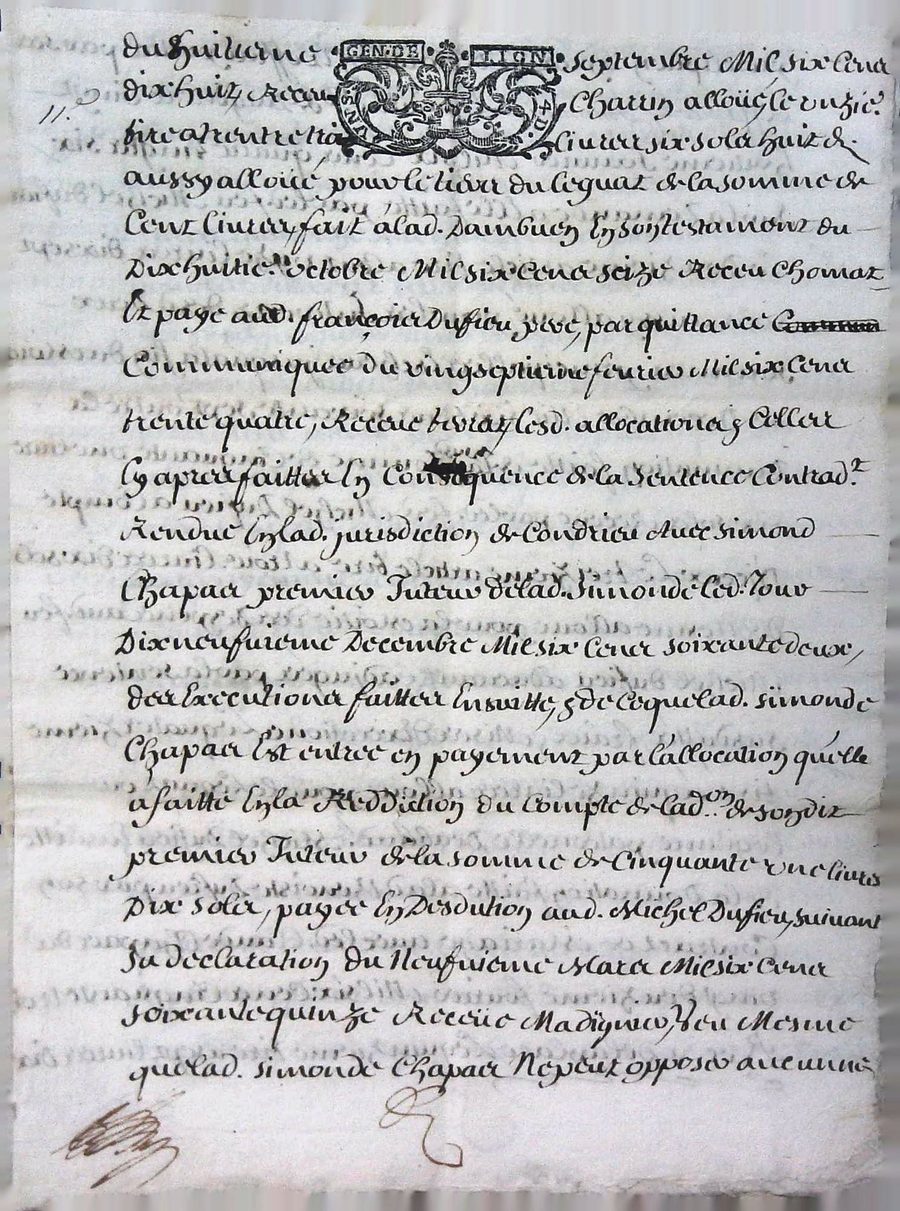 GEN·DE LION
UNS· 4D·
du huitieme septembre Mil six cens
11.e
dixhuit, Receu Charrin alloüé le onzie.
livres six sols huit d.
aussy alloüé pour le tiers du leguat de la somme de
Cent livres, fait a lad. Dambuen En son testament du
Dixhuitie. octobre Mil six Cens seize Receu Chomat
Et paye aud. françois Dufieu, pere, par quittance
Communiquée du vingseptieme feurier Mil six Cens
trente quatre, Receue lesd. allocations & Celles
Cy apres faittes En Consequence de la Sentence Contrad.e
Rendue En lad. jurisdiction de Condrieu Auec simond
Chapas premier Tuteur de lad. Simonde Led. Jour
Dixneufuieme Decembre Mil six Cens soixante deux,
des Executions faittes Ensuitte, & de Ce que lad. simonde
Chapas Est entrée en payement par l'allocation quelle
a faitte En la Reddiction du Compte de lad.on de son dit
premier Tuteur de la somme de Cinquante vne livres
Dix Sols, payée En Desdution aud. Michel Dufieu, suivant
sa declaration du Neufuieme Mars Mil six Cens
soixante quinze Receüe Madignier, Mesme
que lad. simonde Chapas Ne peut opposer aucunne